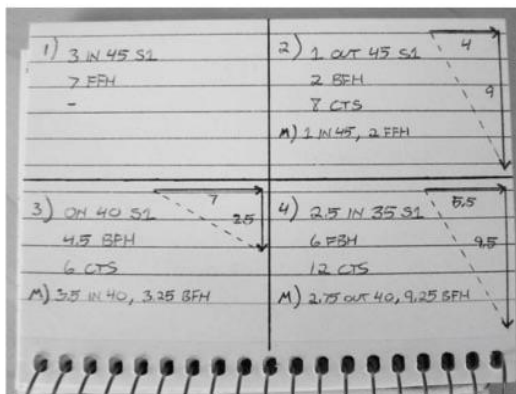 1) 3 IN 45 S1
7 FFH
-
2) 1 OUT 45 S1
4
2 BFH
9
8 CTS
M) 1 IN 45, 2 FFH
3) ON 40 S1
7
2.5
4.5 BFH
6 CTS
M) 3.5 IN 40, 3.25 BFH
4) 2.5 IN 35 S1
5.5
6 FBH
9.5
12 CTS
M) 2.75 OUT 40, 9.25 BFH